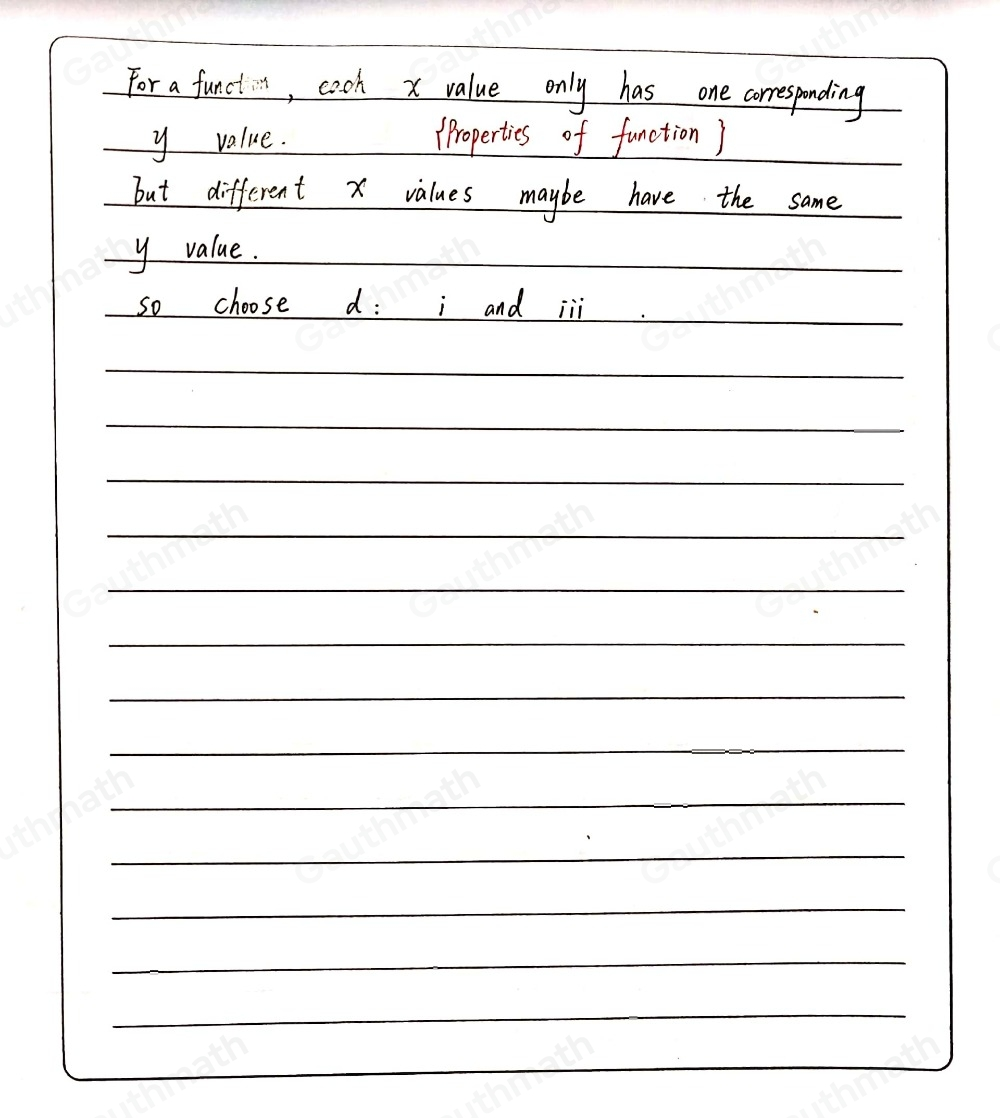 For a function, each x value only has one corresponding
y value. {Properties of function}
but different x values maybe have the same
y value.
so choose d: i and iii .